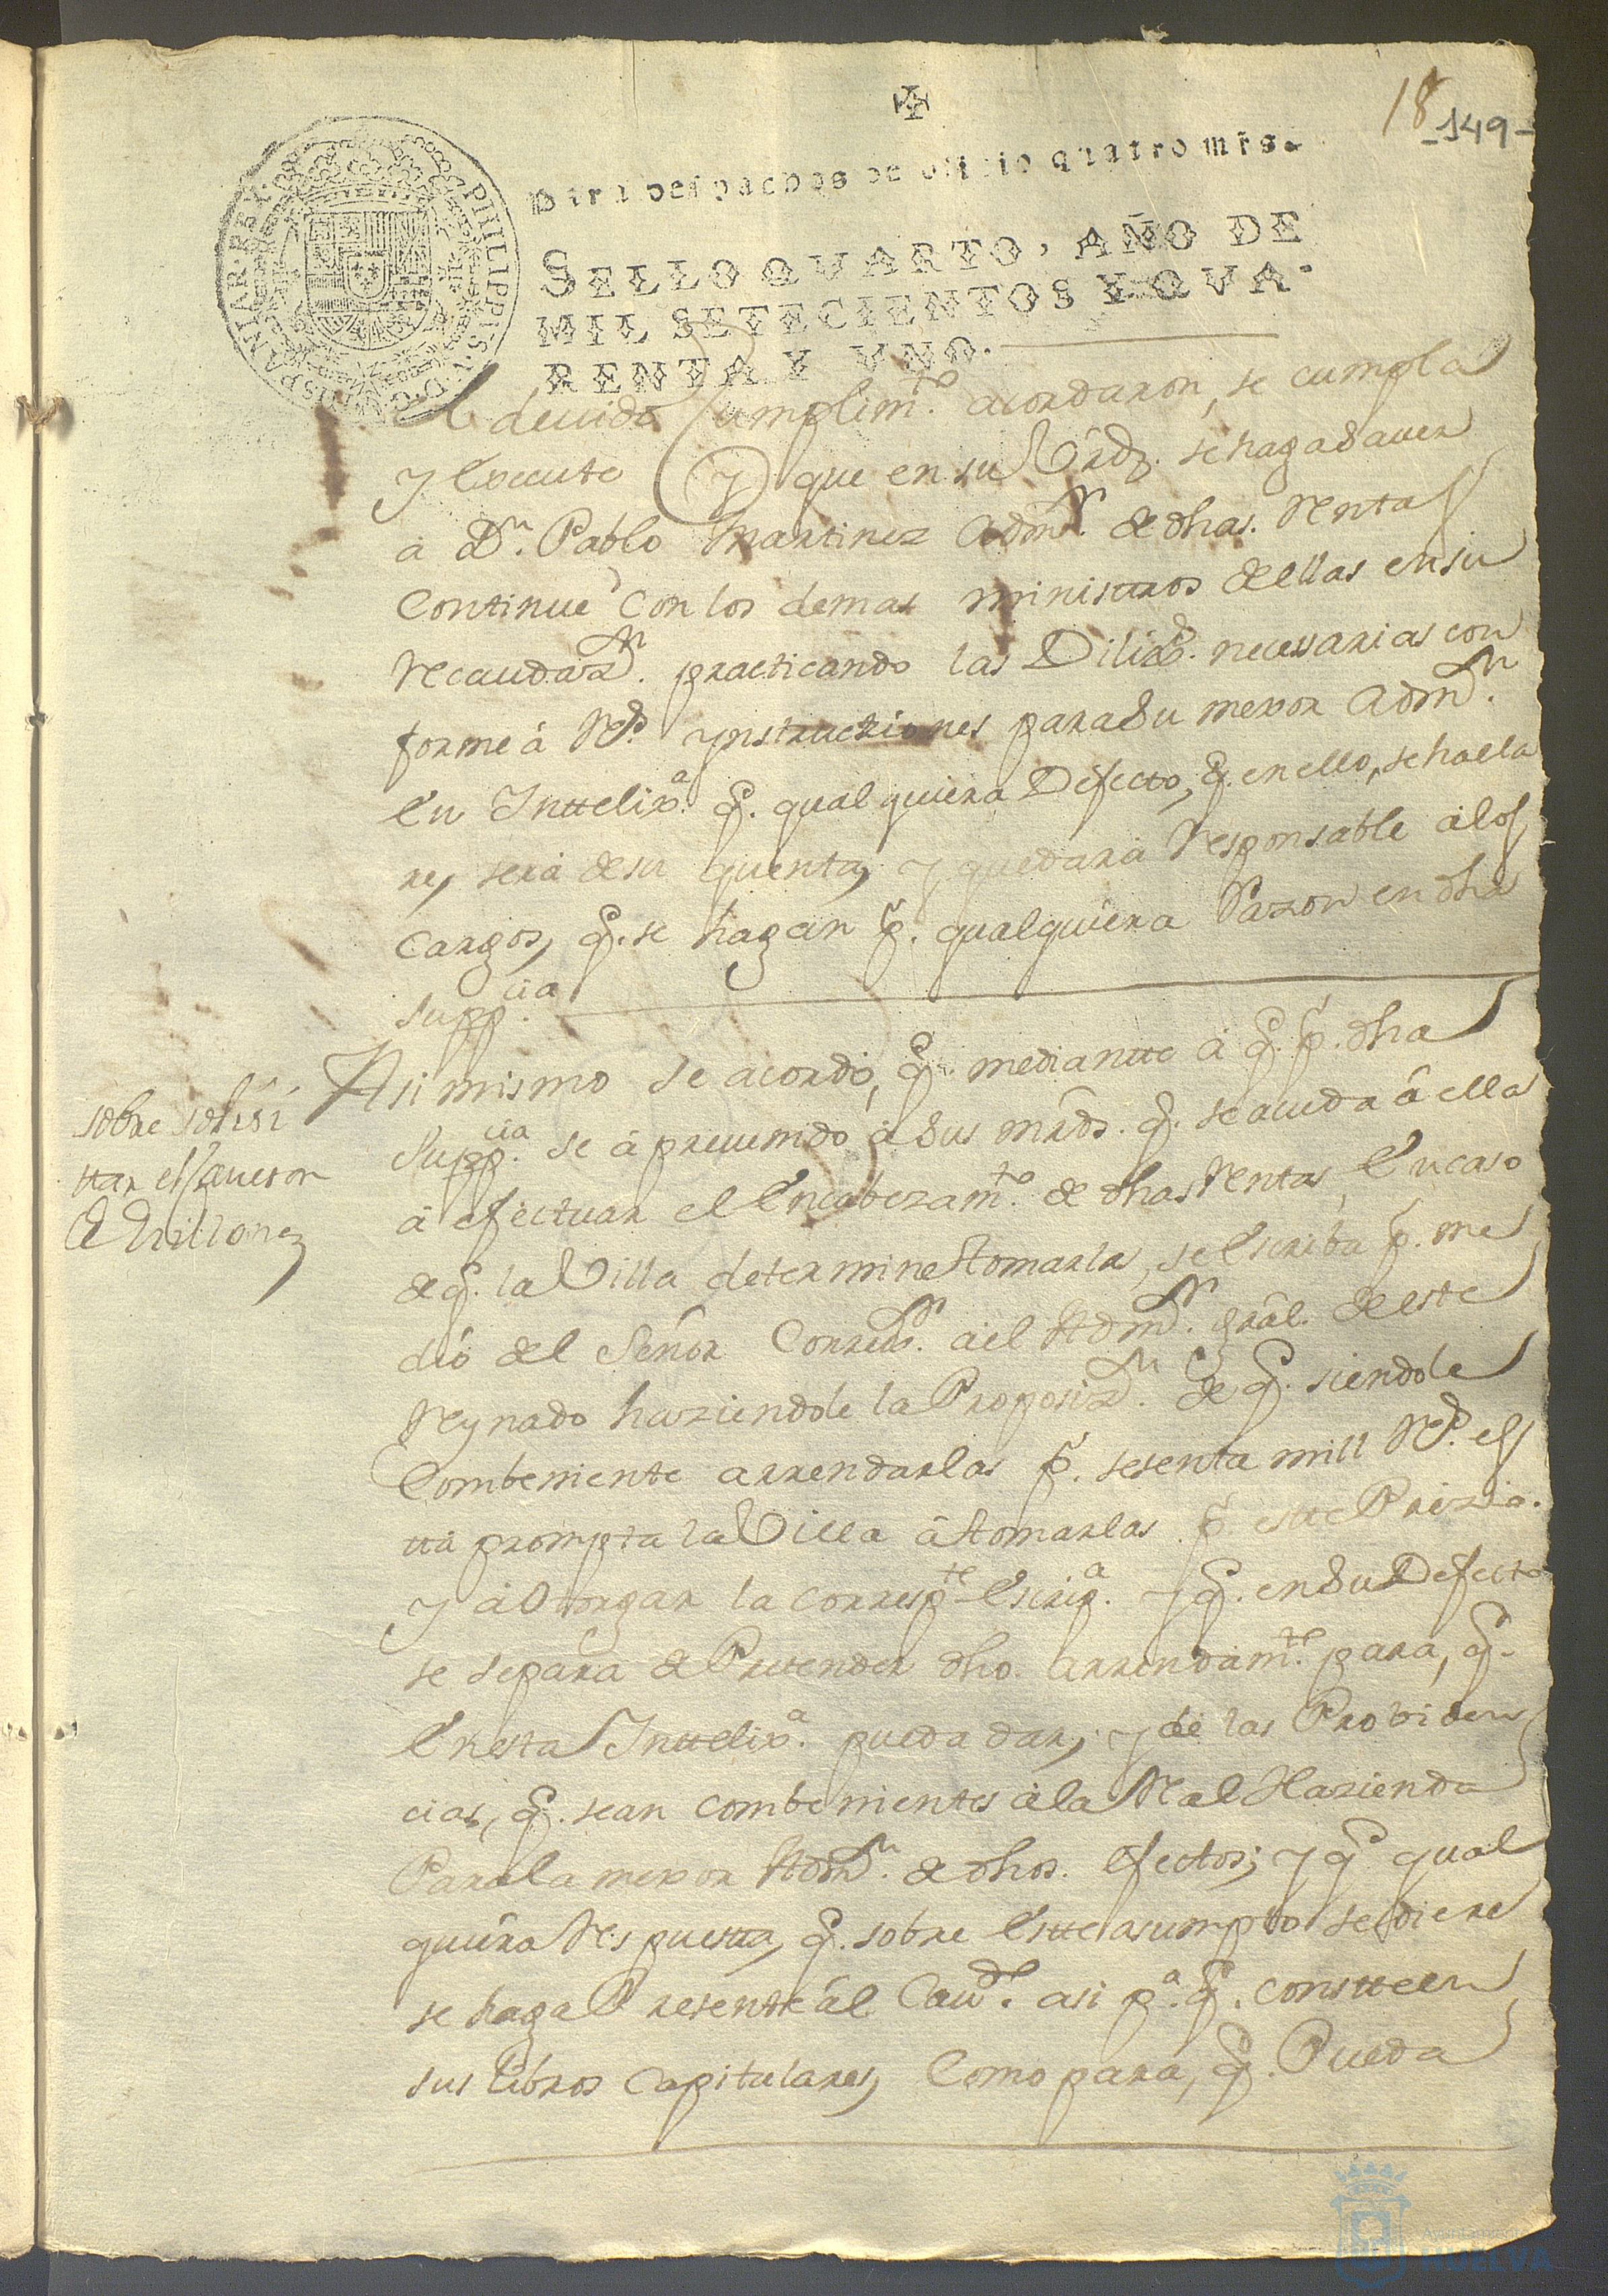 18
-149-
Para despachos de oficio quatro mrs.
SELLO QVARTO, AÑO DE
MIL SETECIENTOS Y QVA-
RENTA Y VNO.
PHILIPPVS V D G HISPANIAR REX
el deuido Cumplim.to acordaron, se cumpla
y Execute Y que en su Virtd. se haga sauer
a Dn. Pablo Martinez Admor. de dhas. Rentas
Continue con los demas ministros dellas en su
Recaudazn. practicando las Dilixs. necessarias con
forme á Rs. ynstrucciones para su mexor Admn.
En Inttelixa. q. qualquiera Defecto, q. en ello, se halla
re, será de su quenta, y quedará Responsable a los
cargos, q. se hagan p. qualquiera Razon en dha
Suppcia.
sobre solisi
ttar el favor
de Millones
Asi mismo se acordó, q. mediantte á q. p. dha
Suppcia. se á preuenido á Sus mrds. q. se acuda á ella
á efectuar el Encabezamto. de dhas Rentas, En caso
de q. la Villa determine tomarla, se Escriba p. me
dio del Señor Correxr. a el Admr. gral. de este
Reynado haziendole la Proposizn. de q. siendole
Combeniente arrendarlas p. sesenta mill Rs. es
tta prompta la Villa á tomarlas p. estte Prezio.
y á Otorgar la correspte. Escripa. y q. en Su Defecto
se separa de Prettender dho. arrendamto. para, q.
En esta Inttelixa. pueda dar, y dé las Probiden
cias, q. sean combenientes á la Real Hazienda
Para la mexor Admn. de dhos. Efectos; y q. qual
quiera Respuestta, q. sobre Estte asumpto se diere
se haga Presentte ál Cauo. asi pa. q. constte en
sus libros Capitulares, Como para, q. Pueda
Ayuntamiento
HUELVA